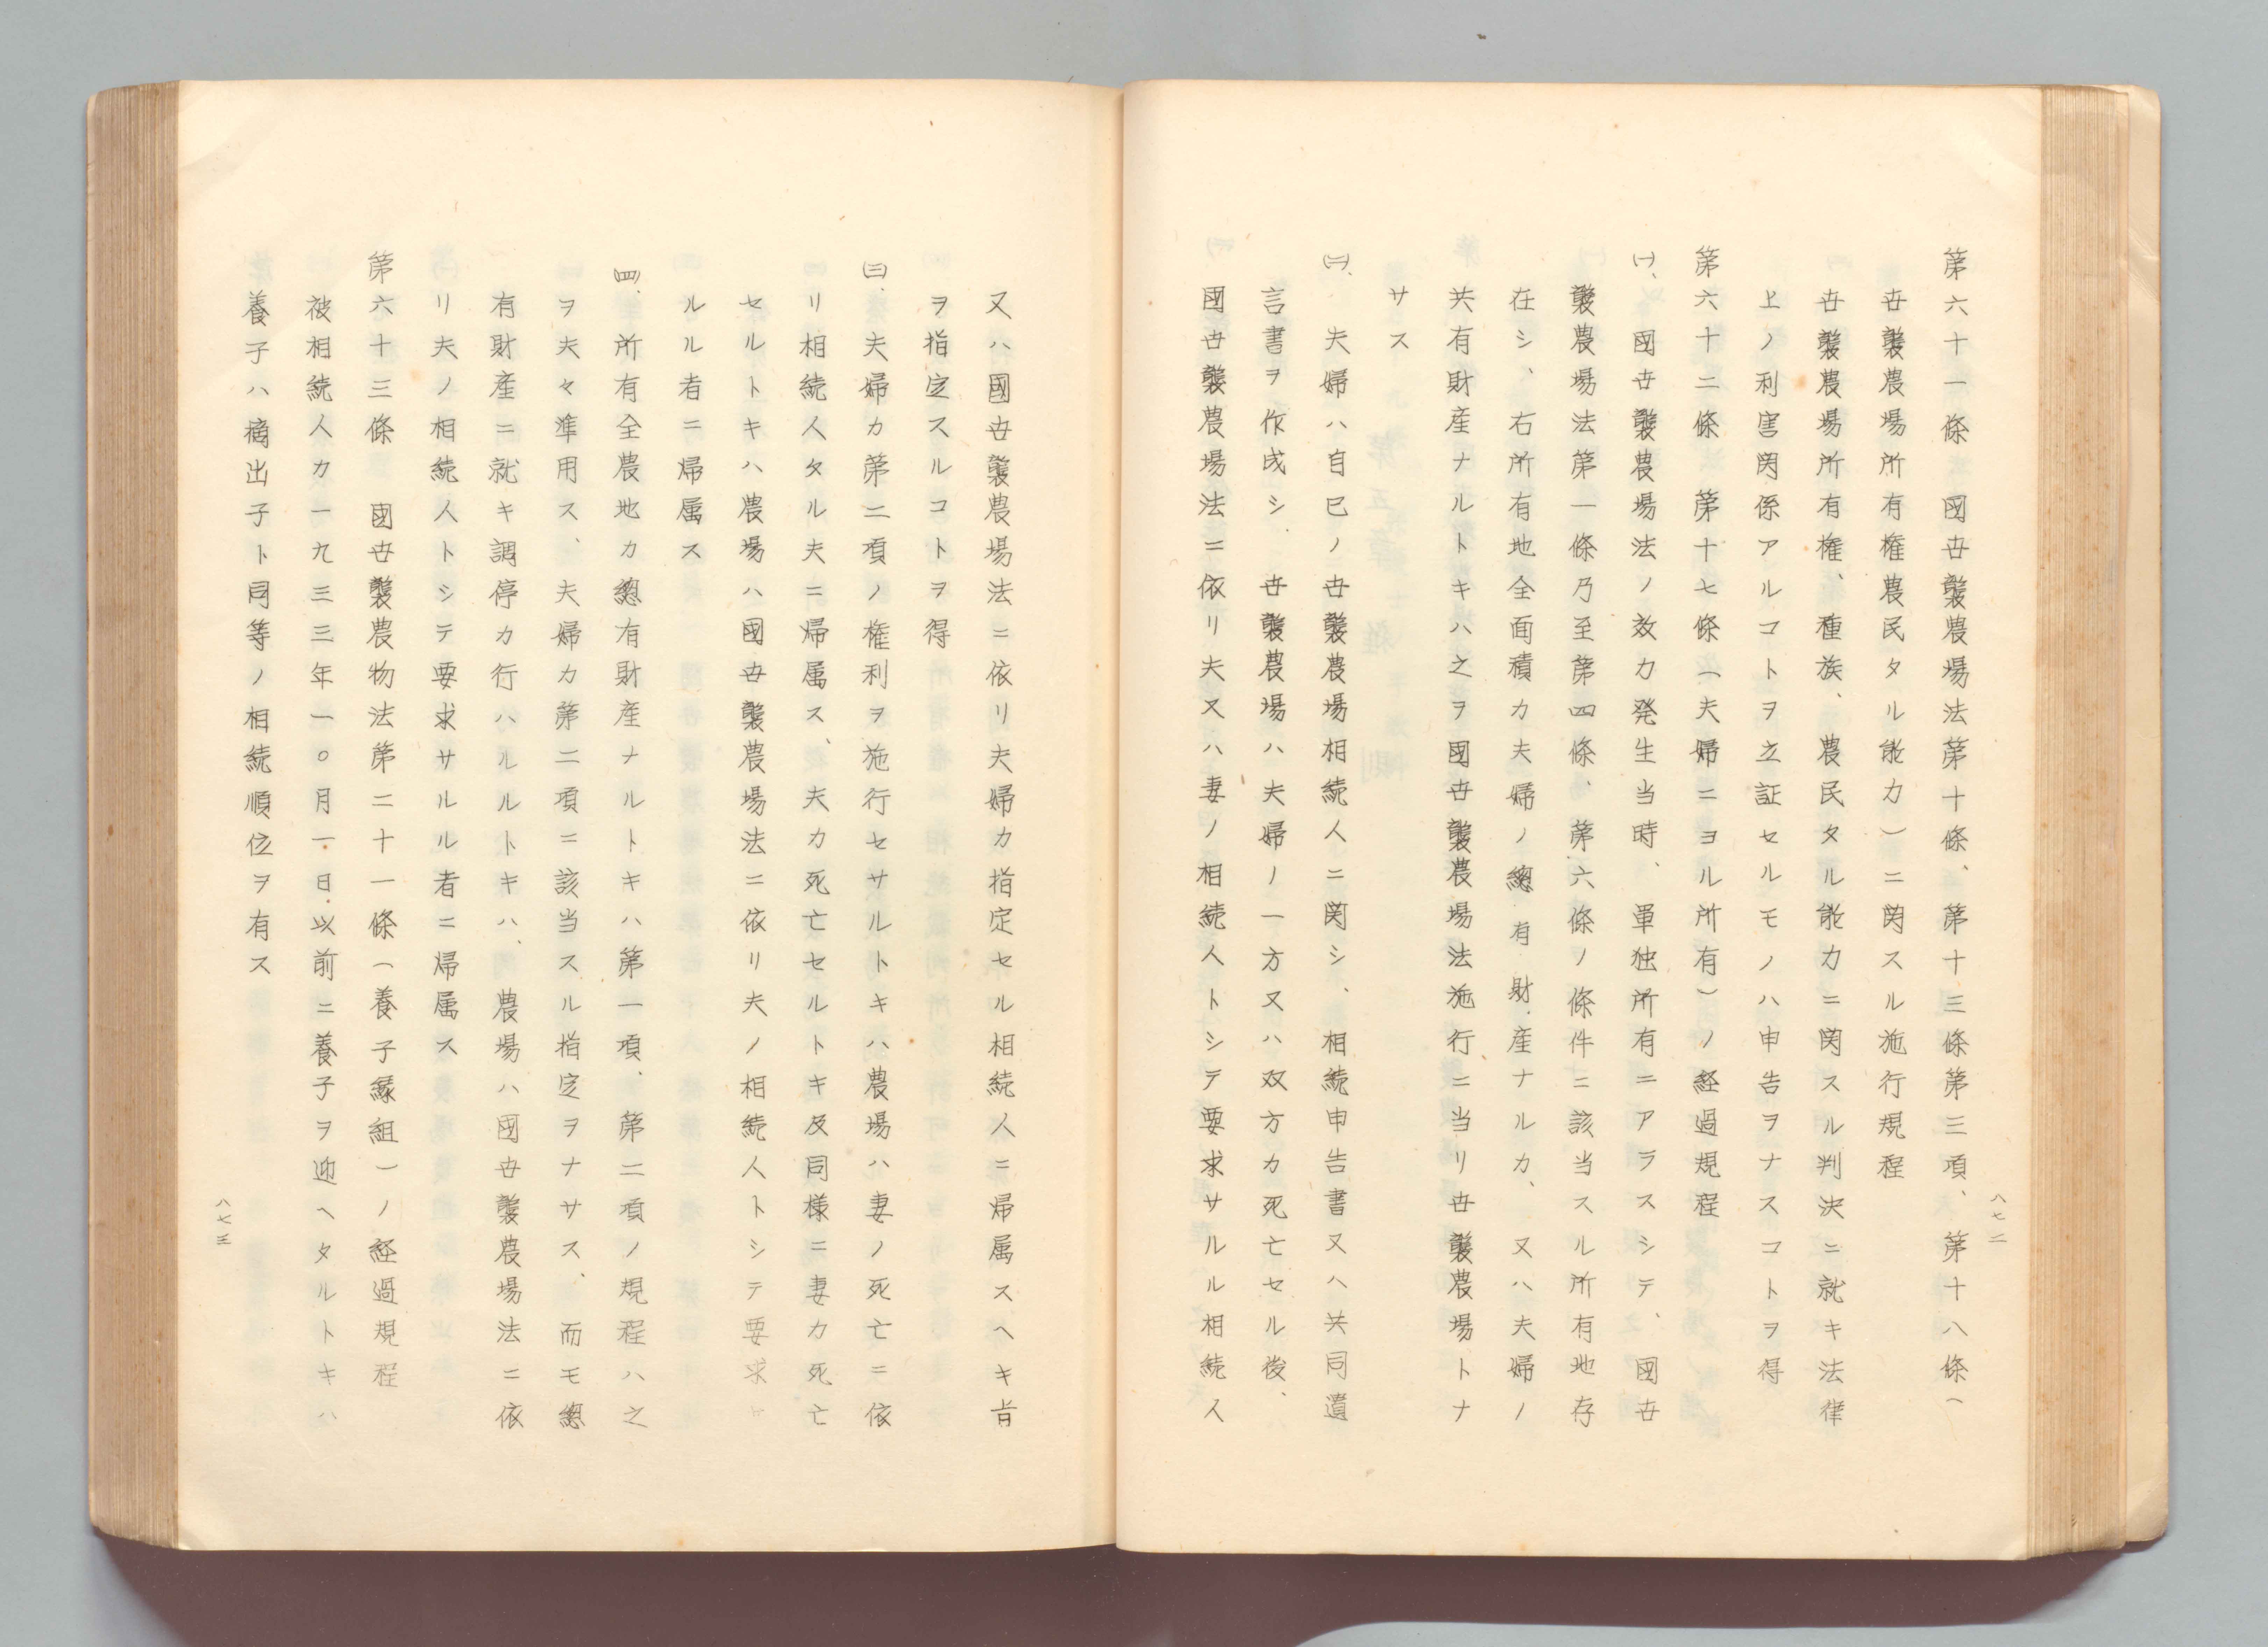 八七二
第六十一條　國世襲農場法第十條、第十三條第三項、第十八條（
世襲農場所有権農民タル能力）ニ関スル施行規程
世襲農場所有権、種族、農民タル能力ニ関スル判決ニ就キ法律
上ノ利害関係アルコトヲ立証セルモノハ申告ヲナスコトヲ得
第六十二條　第十七條（夫婦ニヨル所有）ノ経過規程
㈠、國世襲農場法ノ效力発生当時、單独所有ニアラスシテ、國世
襲農場法第一條乃至第四條、第六條ノ條件ニ該当スル所有地存
在シ、右所有地全面積カ夫婦ノ總有財産ナルカ、又ハ夫婦ノ
共有財産ナルトキハ之ヲ國世襲農場法施行ニ当リ世襲農場トナ
サス
㈡、夫婦ハ自己ノ世襲農場相続人ニ関シ、相続申告書又ハ共同遺
言書ヲ作成シ、世襲農場ハ夫婦ノ一方又ハ双方カ死亡セル後、
國世襲農場法ニ依リ夫又ハ妻ノ相続人トシテ要求サルル相続人
又ハ國世襲農場法ニ依リ夫婦カ指定セル相続人ニ帰属スヘキ旨
ヲ指定スルコトヲ得
㈢、夫婦カ第二項ノ権利ヲ施行セサルトキハ農場ハ妻ノ死亡ニ依
リ相続人タル夫ニ帰属ス、夫カ死亡セルトキ及同様ニ妻カ死亡
セルトキハ農場ハ國世襲農場法ニ依リ夫ノ相続人トシテ要求サ
ルル者ニ帰属ス
㈣、所有全農地カ總有財産ナルトキハ第一項、第二項ノ規程ハ之
ヲ夫々準用ス、夫婦カ第二項ニ該当スル指定ヲナサス、而モ總
有財産ニ就キ調停カ行ハルルトキハ、農場ハ國世襲農場法ニ依
リ夫ノ相続人トシテ要求サルル者ニ帰属ス
第六十三條　國世襲農物法第二十一條（養子縁組）ノ経過規程
被相続人カ一九三三年一〇月一日以前ニ養子ヲ迎ヘタルトキハ
養子ハ摘出子ト同等ノ相続順位ヲ有ス
八七三